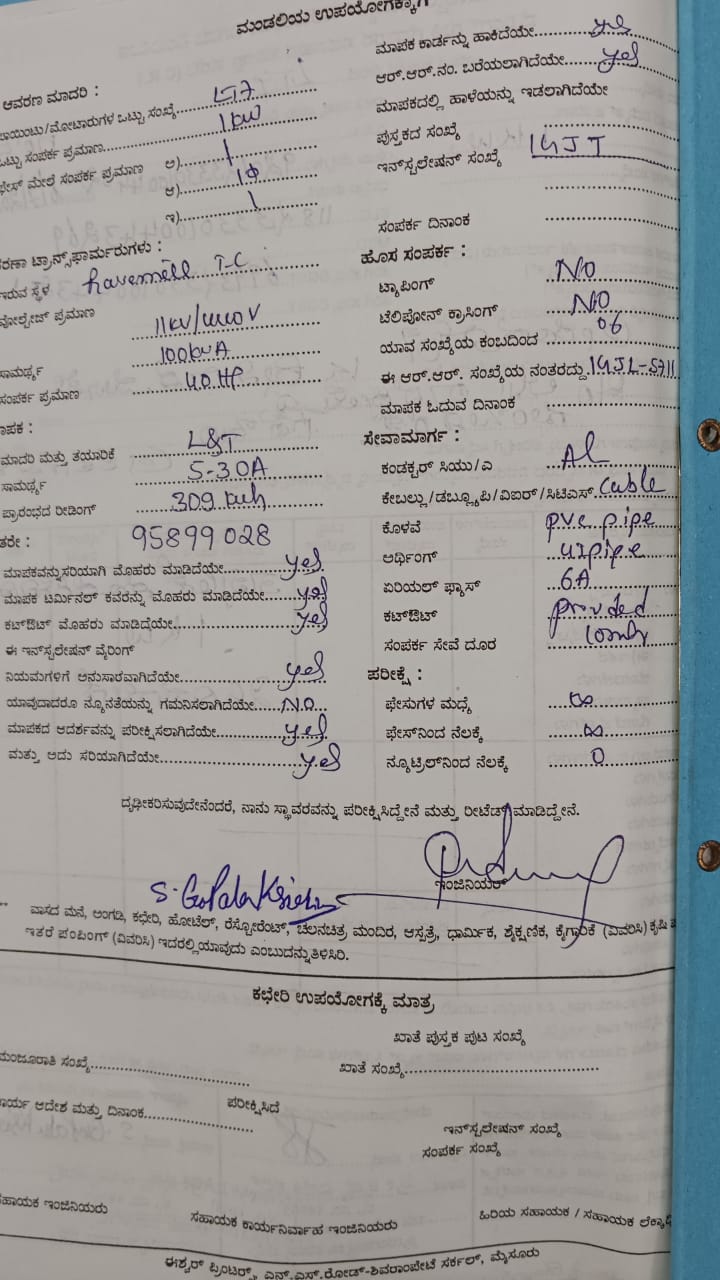 ಮಂಡಲಿಯ ಉಪಯೋಗಕ್ಕಾಗಿ
ಆವರಣ ಮಾದರಿ : LT7
ಪಾಯಿಂಟು/ಮೋಟಾರುಗಳ ಒಟ್ಟು ಸಂಖ್ಯೆ
ಒಟ್ಟು ಸಂಪರ್ಕ ಪ್ರಮಾಣ 1kW
ಫೇಸ್ ಮೇಲೆ ಸಂಪರ್ಕ ಪ್ರಮಾಣ ಅ) 1
ಆ) 1Φ
ಇ) 1
ಟ್ರಾನ್ಸ್‌ಫಾರ್ಮರುಗಳು :
ಇರುವ ಸ್ಥಳ T-C
ವೋಲ್ಟೇಜ್ ಪ್ರಮಾಣ 11kV/
ಸಾಮರ್ಥ್ಯ 100kVA
ಸಂಪರ್ಕ ಪ್ರಮಾಣ 40 HP
ಮಾಪಕ :
ಮಾದರಿ ಮತ್ತು ತಯಾರಿಕೆ L&T
ಸಾಮರ್ಥ್ಯ 5-30A
ಪ್ರಾರಂಭದ ರೀಡಿಂಗ್ 309 kwh
ಇತರೇ : 95899028
ಮಾಪಕವನ್ನುಸರಿಯಾಗಿ ಮೊಹರು ಮಾಡಿದೆಯೇ yes
ಮಾಪಕ ಟರ್ಮಿನಲ್ ಕವರನ್ನು ಮೊಹರು ಮಾಡಿದೆಯೇ yes
ಕಟ್‌ಔಟ್ ಮೊಹರು ಮಾಡಿದೆಯೇ yes
ಈ ಇನ್‌ಸ್ಟಲೇಷನ್ ವೈರಿಂಗ್
ನಿಯಮಗಳಿಗೆ ಅನುಸಾರವಾಗಿದೆಯೇ yes
ಯಾವುದಾದರೂ ನ್ಯೂನತೆಯನ್ನು ಗಮನಿಸಲಾಗಿದೆಯೇ NO
ಮಾಪಕದ ಆದರ್ಶವನ್ನು ಪರೀಕ್ಷಿಸಲಾಗಿದೆಯೇ yes
ಮತ್ತು ಅದು ಸರಿಯಾಗಿದೆಯೇ yes
ಮಾಪಕ ಕಾರ್ಡನ್ನು ಹಾಕಿದೆಯೇ yes
ಆರ್.ಆರ್.ನಂ. ಬರೆಯಲಾಗಿದೆಯೇ yes
ಮಾಪಕದಲ್ಲಿ ಹಾಳೆಯನ್ನು ಇಡಲಾಗಿದೆಯೇ
ಪುಸ್ತಕದ ಸಂಖ್ಯೆ
ಇನ್‌ಸ್ಟಲೇಷನ್ ಸಂಖ್ಯೆ
ಸಂಪರ್ಕ ದಿನಾಂಕ
ಹೊಸ ಸಂಪರ್ಕ :
ಟ್ಯಾಪಿಂಗ್ NO
ಟೆಲಿಪೋನ್ ಕ್ರಾಸಿಂಗ್ NO
ಯಾವ ಸಂಖ್ಯೆಯ ಕಂಬದಿಂದ 06
ಈ ಆರ್.ಆರ್. ಸಂಖ್ಯೆಯ ನಂತರದ್ದು IGJL-5711
ಮಾಪಕ ಓದುವ ದಿನಾಂಕ
ಸೇವಾಮಾರ್ಗ :
ಕಂಡಕ್ಟರ್ ಸಿಯು/ಎ Al
ಕೇಬಲ್ಲು/ಡಬ್ಲ್ಯೂಪಿ/ವಿಐರ್/ಸಿಟಿಎಸ್ Cable
ಕೊಳವೆ pvc pipe
ಅರ್ಥಿಂಗ್ pipe
ಏರಿಯಲ್ ಫ್ಯೂಸ್ 6A
ಕಟ್‌ಔಟ್ provided
ಸಂಪರ್ಕ ಸೇವೆ ದೂರ
ಪರೀಕ್ಷೆ :
ಫೇಸುಗಳ ಮಧ್ಯೆ ∞
ಫೇಸ್‌ನಿಂದ ನೆಲಕ್ಕೆ ∞
ನ್ಯೂಟ್ರಿಲ್‌ನಿಂದ ನೆಲಕ್ಕೆ 0
ದೃಢೀಕರಿಸುವುದೇನೆಂದರೆ, ನಾನು ಸ್ಥಾವರವನ್ನು ಪರೀಕ್ಷಿಸಿದ್ದೇನೆ ಮತ್ತು ರೀಟೆಡ್ ಮಾಡಿದ್ದೇನೆ.
ಇಂಜಿನಿಯರ್
** ವಾಸದ ಮನೆ, ಅಂಗಡಿ, ಕಛೇರಿ, ಹೋಟೆಲ್, ರೆಸ್ಟೋರೆಂಟ್, ಚಲನಚಿತ್ರ ಮಂದಿರ, ಆಸ್ಪತ್ರೆ, ಧಾರ್ಮಿಕ, ಶೈಕ್ಷಣಿಕ, ಕೈಗಾರಿಕೆ (ವಿವರಿಸಿ) ಕೃಷಿ
ಇತರೆ ಪಂಪಿಂಗ್ (ವಿವರಿಸಿ) ಇದರಲ್ಲಿಯಾವುದು ಎಂಬುದನ್ನುತಿಳಿಸಿರಿ.
ಕಛೇರಿ ಉಪಯೋಗಕ್ಕೆ ಮಾತ್ರ
ಖಾತೆ ಪುಸ್ತಕ ಪುಟ ಸಂಖ್ಯೆ
ಮಂಜೂರಾತಿ ಸಂಖ್ಯೆ
ಖಾತೆ ಸಂಖ್ಯೆ
ಕಾರ್ಯ ಆದೇಶ ಮತ್ತು ದಿನಾಂಕ
ಪರೀಕ್ಷಿಸಿದೆ
ಇನ್‌ಸ್ಟಲೇಷನ್ ಸಂಖ್ಯೆ
ಸಂಪರ್ಕ ಸಂಖ್ಯೆ
ಸಹಾಯಕ ಇಂಜಿನಿಯರು
ಸಹಾಯಕ ಕಾರ್ಯನಿರ್ವಾಹ ಇಂಜಿನಿಯರು
ಹಿರಿಯ ಸಹಾಯಕ / ಸಹಾಯಕ
ಈಶ್ವರ್ ಪ್ರಿಂಟರ್ಸ್, ಎನ್.ಎಸ್.ರೋಡ್-ಶಿವರಾಂಪೇಟೆ ಸರ್ಕಲ್, ಮೈಸೂರು